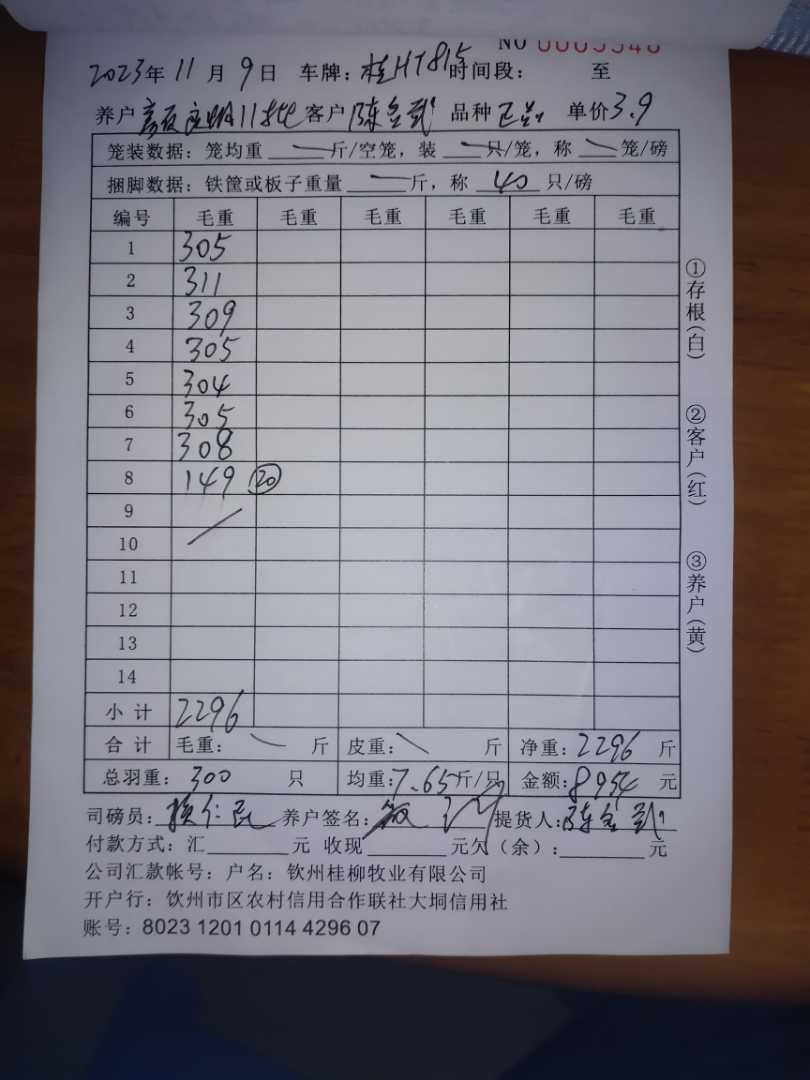 NO 0005546
2023年 11 月 9 日 车牌: 桂HT815 时间段: 至
养户 11批 客户 陈金武 品种 正品 单价 3.9
笼装数据: 笼均重 — 斤/空笼, 装 — 只/笼, 称 — 笼/磅
捆脚数据: 铁筐或板子重量 — 斤, 称 40 只/磅
编号 毛重 毛重 毛重 毛重 毛重 毛重
1 305
2 311
3 309
4 305
5 304
6 305
7 308
8 149 20
9
10
11
12
13
14
小 计 2296
合 计 毛重: 斤 皮重: 斤 净重: 2296 斤
总羽重: 300 只 均重: 7.65 斤/只 金额: 8954 元
司磅员: 养户签名: 提货人: 陈金武
付款方式: 汇 元 收现 元欠(余): 元
公司汇款帐号: 户名: 钦州桂柳牧业有限公司
开户行: 钦州市区农村信用合作联社大垌信用社
账号: 8023 1201 0114 4296 07
①存根(白)
②客户(红)
③养户(黄)